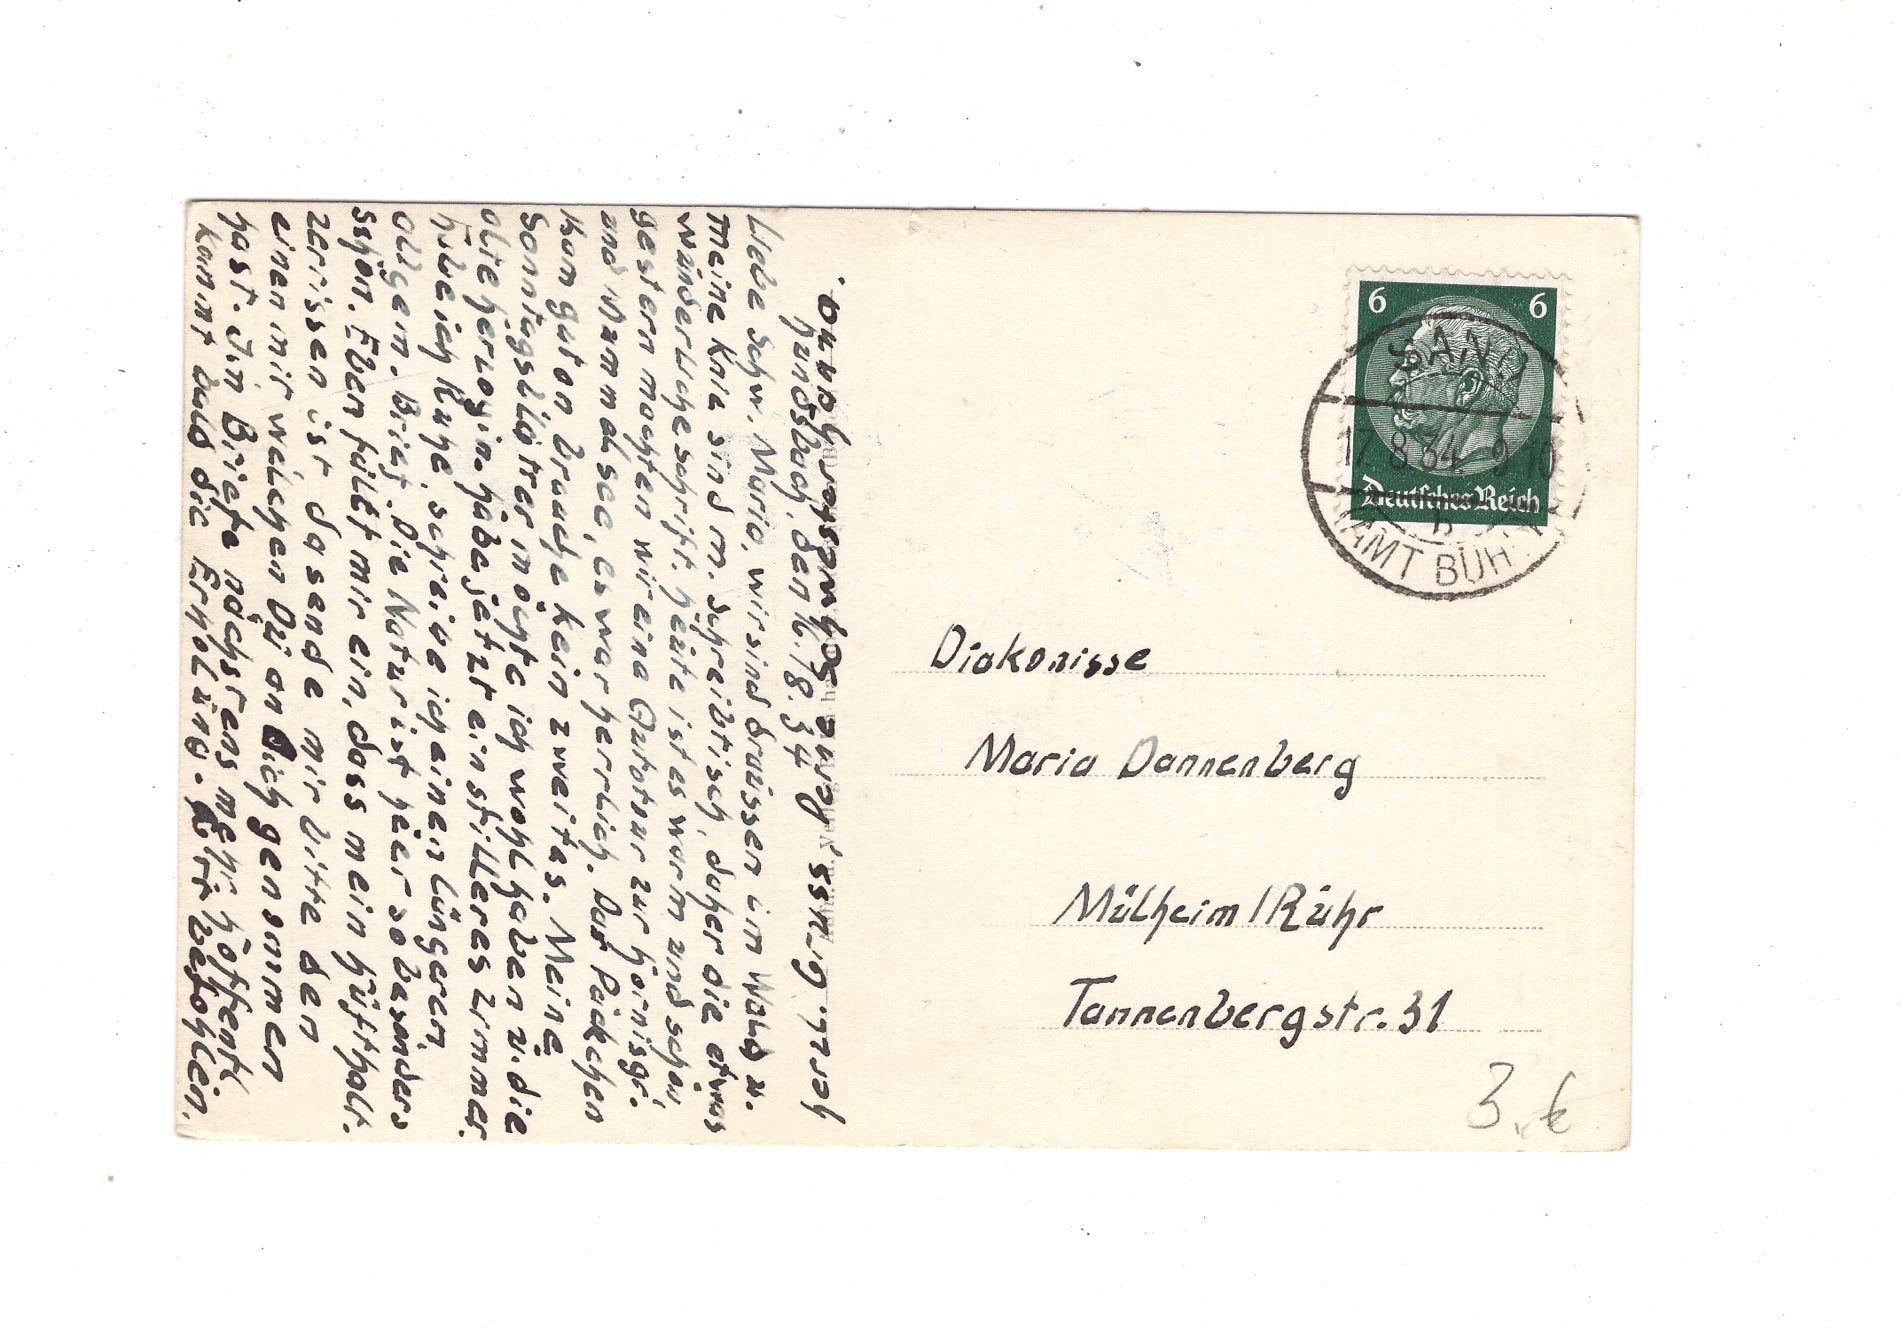 Hundsbach, den 16./8.34
Liebe Schw. Maria, wir sind draüssen im Wald u.
meine Knie sind m. schreibtisch, daher die etwas
wünderliche schrift. Heüte ist es warm und schön,
gestern machten wir eine Autotour zur Hornisgr.
und Mummelsee, es war herrlich. Das Päckchen
kam gut an, braüche kein zweites. Meine
Sonntagsblätter möchte ich wohl haben ü. die
alte Herzogin. Habe jetzt ein stilleres Zimmer.
Habe ich Rühe, schreibe ich einen längeren
allgem. Brief. Die Natur ist hier so besonders
schön. Eben fällt mir ein, dass mein Hüfthalt.
zerrissen ist da sende mir bitte den
einen mir welchen Dü an Dich genommen
hast. Im Briefe nächstens mehr. Hoffentl.
kommt bald die Erholüng. Gott befohlen.
Herzl. Grüss, Deine
6 6
SAND
17.8.34 9-10
Deutsches Reich
b
(AMT BÜH
Diakonisse
Maria Dannenberg
Mülheim/Rühr
Tannenbergstr. 31
3,- €